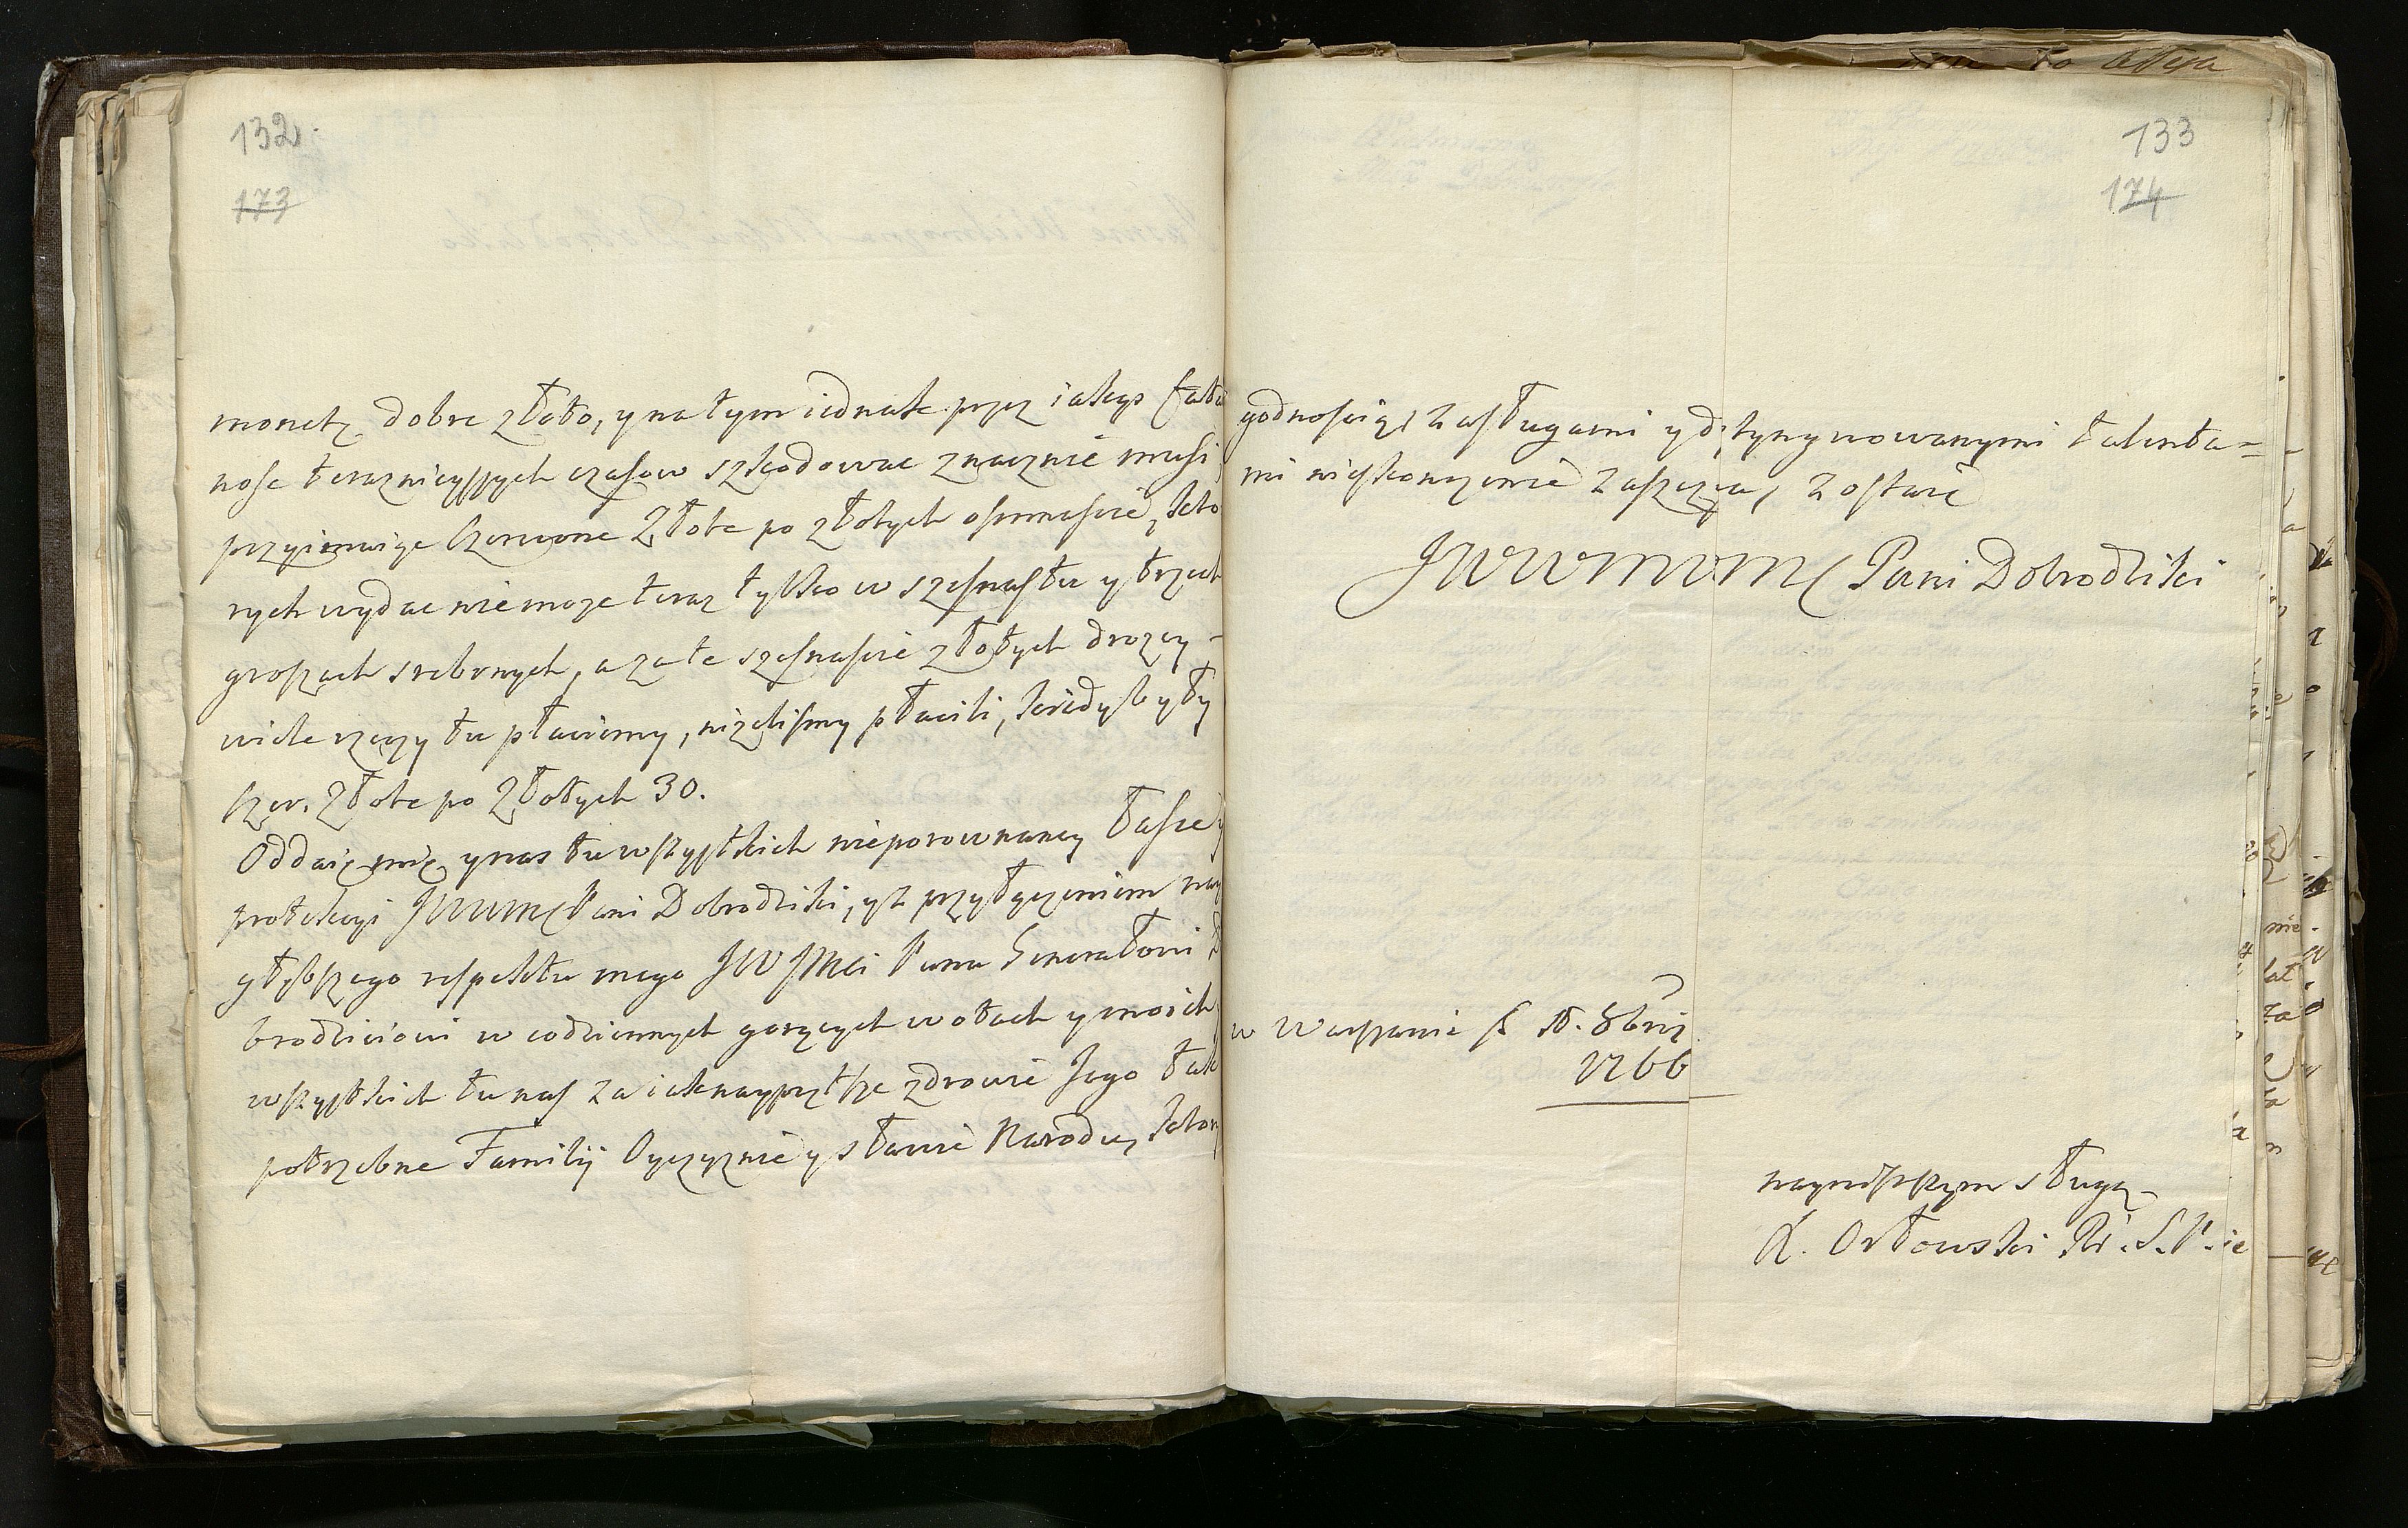 132.
173
monetę dobre złoto, y na tym iednak przez iakąs fatal
nosc teraznieyszych czasow szkodowac znacznie musi
przyimuiąc Czerwone Złote po złotych osmnascie, kto
rych wydac nie moze teraz tylko w szesnastu y trzech
groszach srebrnych, a za te szesnascie złotych drozey -
wiele rzeczy tu płacimy, nizelismy płacili, kiedy były
Czer. Złote po Złotych 30.
Oddaię mię y nas tu wszystkich nieporownaney łasce y
protekcyi JWWMć Pani Dobrodziki, y z przyłączeniem nay
głębszego respektu mego JW JMci Panu Generałowi D
brodzieiowi w codziennych gorących wotach y moich
wszystkich tu nas za iak nayprętsze zdrowie Jego tak
potrzebne Familij Oyczyznie y sławie Narodu, ktory
133
174
godnoscią, zasługami y dystyngwowanymi talenta=
mi nieskonczenie zaszczyca, zostaię
JWWMWMć Pani Dobrodziki
w Warszawie d. 18. 8bris
1766
nayniższym sługą
K. Orłowski